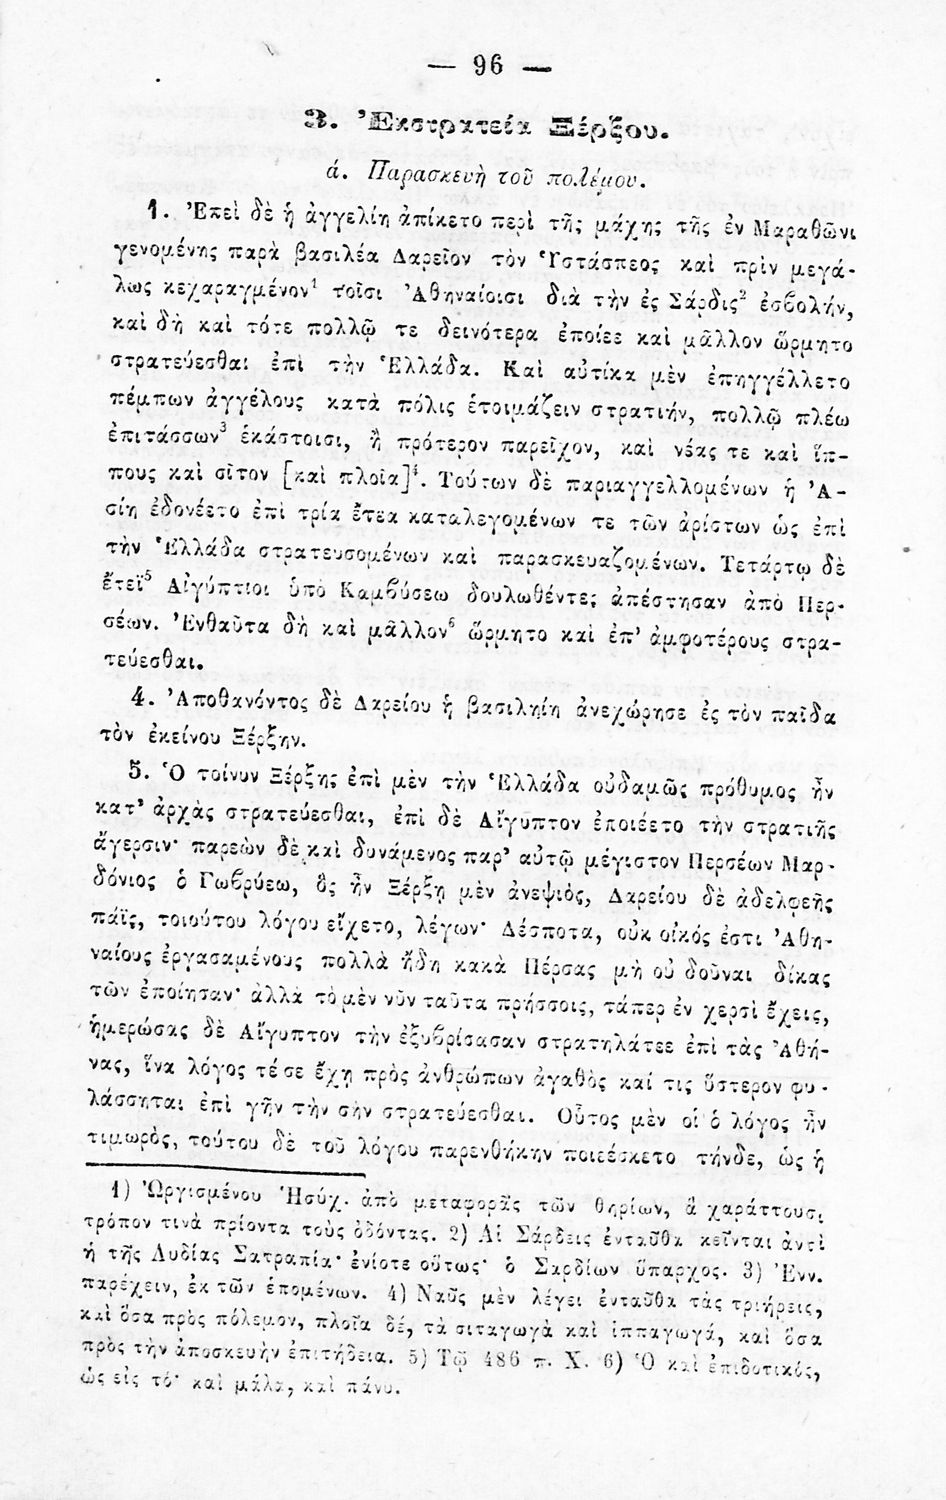 — 96 —
3. Ἐκστρατεία Ξέρξου.
ά. Παρασκευὴ τοῦ πολέμου.
1. Ἐπεὶ δὲ ἡ ἀγγελίη ἀπίκετο περὶ τῆς μάχης τῆς ἐν Μαραθῶνι
γενομένης παρὰ βασιλέα Δαρεῖον τὸν Ὑστάσπεος καὶ πρὶν μεγά-
λως κεχαραγμένον¹ τοῖσι Ἀθηναίοισι διὰ τὴν ἐς Σάρδις² ἐσβολήν,
καὶ δὴ καὶ τότε πολλῷ τε δεινότερα ἐποίεε καὶ μᾶλλον ὥρμητο
στρατεύεσθαι ἐπὶ τὴν Ἑλλάδα. Καὶ αὐτίκα μὲν ἐπηγγέλλετο
πέμπων ἀγγέλους κατὰ πόλις ἑτοιμάζειν στρατιήν, πολλῷ πλέω
ἐπιτάσσων³ ἑκάστοισι, ἢ πρότερον παρεῖχον, καὶ νέας τε καὶ ἵπ-
πους καὶ σῖτον [καὶ πλοῖα]⁴. Τούτων δὲ παριαγγελλομένων ἡ Ἀ-
σίη ἐδονέετο ἐπὶ τρία ἔτεα καταλεγομένων τε τῶν ἀρίστων ὡς ἐπὶ
τὴν Ἑλλάδα στρατευσομένων καὶ παρασκευαζομένων. Τετάρτῳ δὲ
ἔτεϊ⁵ Αἰγύπτιοι ὑπὸ Καμβύσεω δουλωθέντες ἀπέστησαν ἀπὸ Περ-
σέων. Ἐνθαῦτα δὴ καὶ μᾶλλον⁶ ὥρμητο καὶ ἐπ’ ἀμφοτέρους στρα-
τεύεσθαι.
4. Ἀποθανόντος δὲ Δαρείου ἡ βασιληίη ἀνεχώρησε ἐς τὸν παῖδα
τὸν ἐκείνου Ξέρξην.
5. Ὁ τοίνυν Ξέρξης ἐπὶ μὲν τὴν Ἑλλάδα οὐδαμῶς πρόθυμος ἦν
κατ’ ἀρχὰς στρατεύεσθαι, ἐπὶ δὲ Αἴγυπτον ἐποιέετο τὴν στρατιῆς
ἄγερσιν· παρεὼν δὲ καὶ δυνάμενος παρ’ αὐτῷ μέγιστον Περσέων Μαρ-
δόνιος ὁ Γωβρύεω, ὃς ἦν Ξέρξῃ μὲν ἀνεψιὸς, Δαρείου δὲ ἀδελφεῆς
πάϊς, τοιούτου λόγου εἴχετο, λέγων· Δέσποτα, οὐκ οἰκός ἐστι Ἀθη-
ναίους ἐργασαμένους πολλὰ ἤδη κακὰ Πέρσας μὴ οὐ δοῦναι δίκας
τῶν ἐποίησαν· ἀλλὰ τὸ μὲν νῦν ταῦτα πρήσσοις, τάπερ ἐν χερσὶ ἔχεις,
ἡμερώσας δὲ Αἴγυπτον τὴν ἐξυβρίσασαν στρατηλάτεε ἐπὶ τὰς Ἀθή-
νας, ἵνα λόγος τέ σε ἔχῃ πρὸς ἀνθρώπων ἀγαθὸς καί τις ὕστερον φυ-
λάσσηται ἐπὶ γῆν τὴν σὴν στρατεύεσθαι. Οὗτος μὲν οἱ ὁ λόγος ἦν
τιμωρὸς, τούτου δὲ τοῦ λόγου παρενθήκην ποιεέσκετο τήνδε, ὡς ἡ
1) Ὠργισμένου Ἡσύχ. ἀπὸ μεταφορᾶς τῶν θηρίων, ἃ χαράττουσι
τρόπον τινὰ πρίοντα τοὺς ὀδόντας. 2) Αἱ Σάρδεις ἐνταῦθα κεῖνται ἀντὶ
ἡ τῆς Λυδίας Σατραπία· ἐνίοτε οὕτως· ὁ Σαρδίων ὕπαρχος. 3) Ἐνν.
παρέχειν, ἐκ τῶν ἑπομένων. 4) Ναῦς μὲν λέγει ἐνταῦθα τὰς τριήρεις,
καὶ ὅσα πρὸς πόλεμον, πλοῖα δέ, τὰ σιταγωγὰ καὶ ἱππαγωγά, καὶ ὅσα
πρὸς τὴν ἀποσκευὴν ἐπιτήδεια. 5) Τῷ 486 π. Χ. 6) Ὁ καὶ ἐπιδοτικός,
ὡς εἰς τό· καὶ μάλα, καὶ πάνυ.